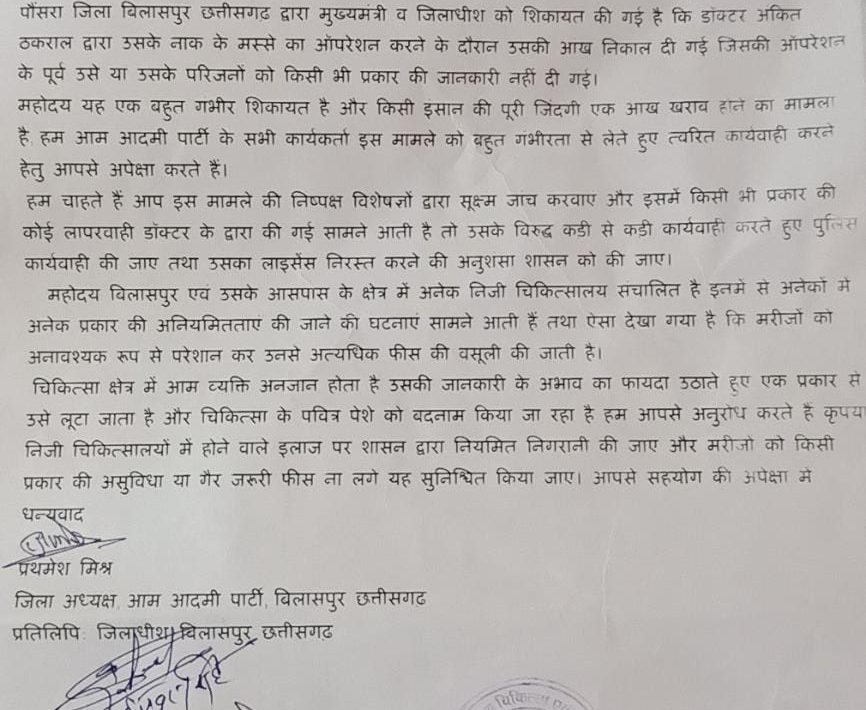 पौंसरा जिला बिलासपुर छत्तीसगढ द्वारा मुख्यमंत्री व जिलाधीश को शिकायत की गई है कि डॉक्टर अंकित
ठकराल द्वारा उसके नाक के मस्से का ऑपरेशन करने के दौरान उसकी आख निकाल दी गई जिसकी ऑपरेशन
के पूर्व उसे या उसके परिजनों को किसी भी प्रकार की जानकारी नहीं दी गई।
महोदय यह एक बहुत गभीर शिकायत है और किसी इंसान की पूरी जिंदगी एक आख खराब होने का मामला
है, हम आम आदमी पार्टी के सभी कार्यकर्ता इस मामले को बहुत गंभीरता से लेते हुए त्वरित कार्यवाही करने
हेतु आपसे अपेक्षा करते हैं।
हम चाहते हैं आप इस मामले की निष्पक्ष विशेषज्ञों द्वारा सूक्ष्म जांच करवाए और इसमें किसी भी प्रकार की
कोई लापरवाही डॉक्टर के द्वारा की गई सामने आती है तो उसके विरुद्ध कडी से कडी कार्यवाही करते हुए पुलिस
कार्यवाही की जाए तथा उसका लाइसेंस निरस्त करने की अनुशसा शासन को की जाए।
महोदय बिलासपुर एवं उसके आसपास के क्षेत्र में अनेक निजी चिकित्सालय संचालित है इनमें से अनेकों में
अनेक प्रकार की अनियमितताएं की जाने की घटनाएं सामने आती हैं तथा ऐसा देखा गया है कि मरीजों को
अनावश्यक रूप से परेशान कर उनसे अत्यधिक फीस की वसूली की जाती है।
चिकित्सा क्षेत्र में आम व्यक्ति अनजान होता है उसकी जानकारी के अभाव का फायदा उठाते हुए एक प्रकार से
उसे लूटा जाता है और चिकित्सा के पवित्र पेशे को बदनाम किया जा रहा है हम आपसे अनुरोध करते हैं कृपय
निजी चिकित्सालयों में होने वाले इलाज पर शासन द्वारा नियमित निगरानी की जाए और मरीजो को किसी
प्रकार की असुविधा या गैर जरूरी फीस ना लगे यह सुनिश्चित किया जाए। आपसे सहयोग की अपेक्षा में
धन्यवाद
प्रथमेश मिश्र
जिला अध्यक्ष, आम आदमी पार्टी, बिलासपुर छत्तीसगढ
प्रतिलिपि: जिलाधीश, बिलासपुर छत्तीसगढ़